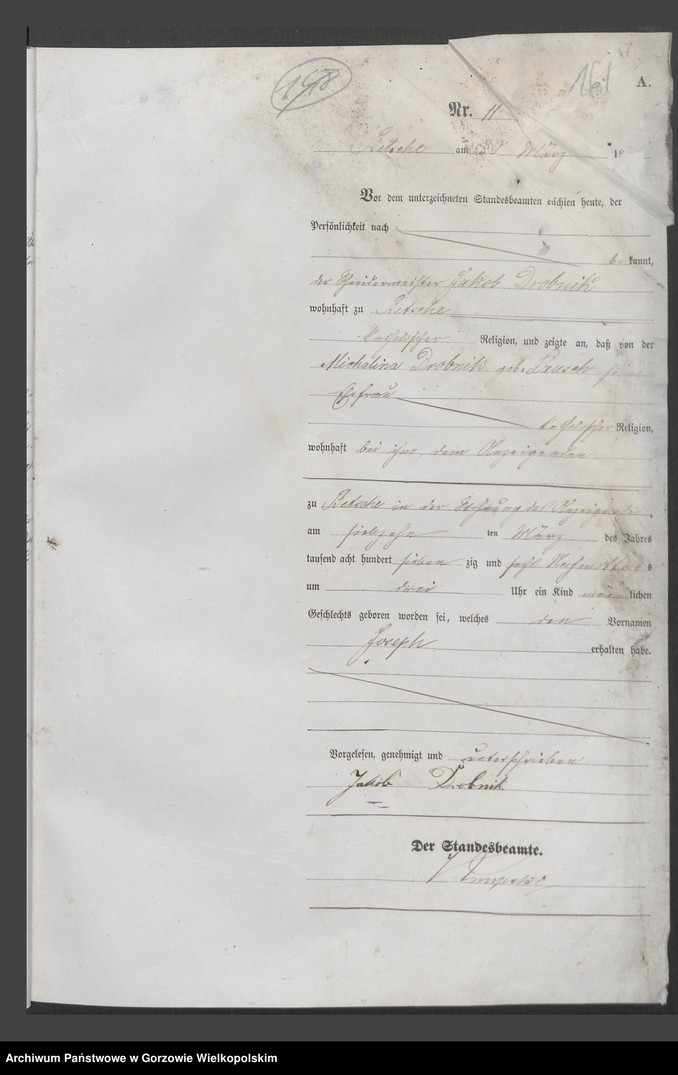 A.
Nr. 11
Betsche am März 18
Vor dem unterzeichneten Standesbeamten erschien heute, der
Persönlichkeit nach
be kannt,
der Schneidermeister Jakob Drobnik
wohnhaft zu Betsche
katholischer Religion, und zeigte an, daß von der
Michalina Drobnik geb. seiner
Ehefrau
katholischer Religion,
wohnhaft bei ihm, dem Anzeigenden
zu Betsche in der Wohnung des Anzeigenden
am siebzehn ten März des Jahres
tausend acht hundert sieben zig und sechs Nachmittags
um drei Uhr ein Kind männlichen
Geschlechts geboren worden sei, welches den Vornamen
Joseph
erhalten habe.
Vorgelesen, genehmigt und unterschrieben
Jakob Drobnik.
Der Standesbeamte.
Archiwum Państwowe w Gorzowie Wielkopolskim